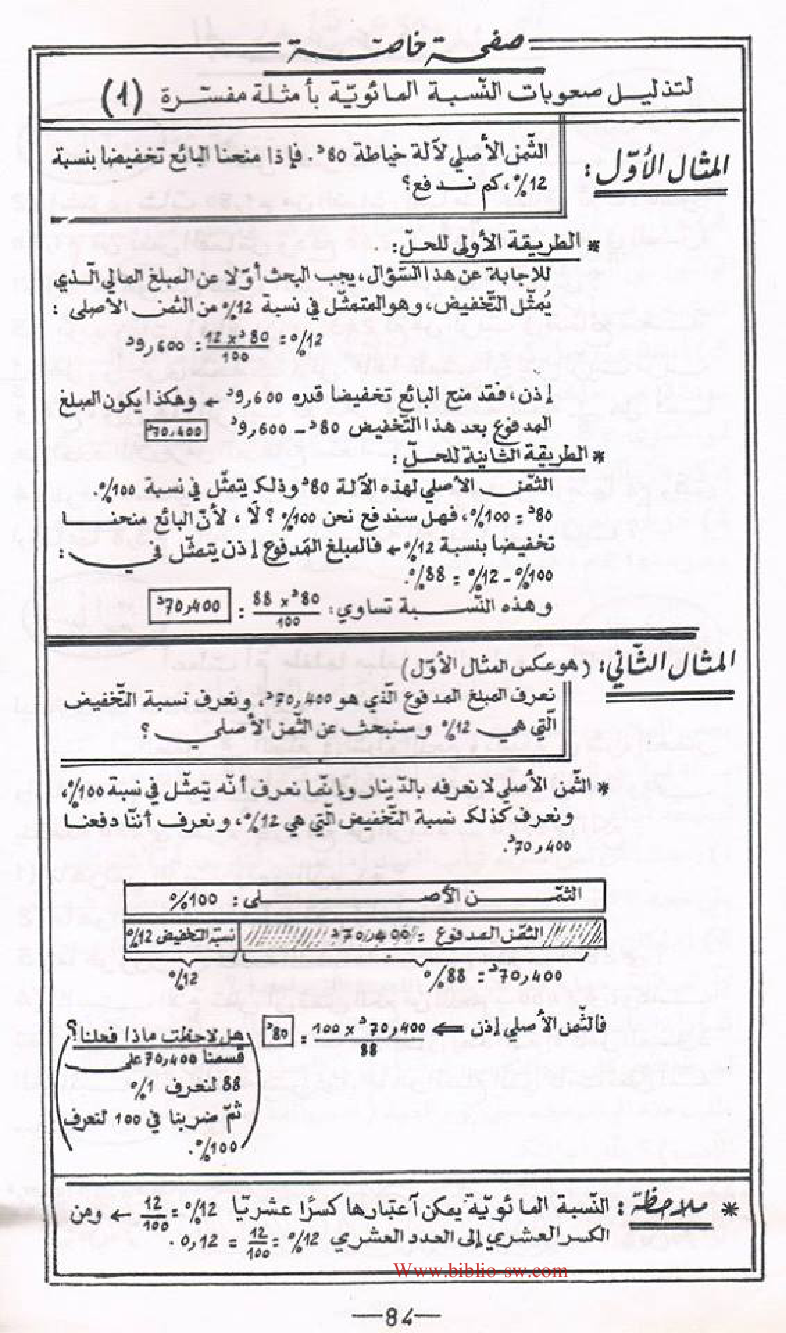 صفحة خاصة
لتذليل صعوبات النّسبة المائويّة بأمثلة مفسّرة (1)
المثال الأوّل :
الثّمن الأصلي لآلة خياطة 80د. فإذا منحنا البائع تخفيضا بنسبة
12%، كم ندفع؟
* الطريقة الأولى للحلّ :
للإجابة عن هذا السّؤال، يجب البحث أوّلا عن المبلغ المالي الّذي
يُمثّل التّخفيض، وهو المتمثّل في نسبة 12% من الثّمن الأصلي :
12% = 80د x 12 / 100 = 9,600د
إذن، فقد منح البائع تخفيضا قدره 9,600د ← وهكذا يكون المبلغ
المدفوع بعد هذا التّخفيض 80د – 9,600د = 70,400د
* الطريقة الثانية للحلّ :
الثّمن الأصلي لهذه الآلة 80د وذلك يتمثّل في نسبة 100%.
80د = 100%، فهل سندفع نحن 100% ؟ لا، لأنّ البائع منحنا
تخفيضا بنسبة 12% ← فالمبلغ المدفوع إذن يتمثّل في :
100% - 12% = 88%.
وهذه النّسبة تساوي : 80د x 88 / 100 = 70,400د
المثال الثّاني : (هو عكس المثال الأوّل)
نعرف المبلغ المدفوع الّذي هو 70,400د، ونعرف نسبة التّخفيض
الّتي هي 12% وسنبحث عن الثّمن الأصلي ؟
* الثّمن الأصلي لا نعرفه بالدّينار وإنّما نعرف أنّه يتمثّل في نسبة 100%،
ونعرف كذلك نسبة التّخفيض الّتي هي 12%، ونعرف أنّنا دفعنا
70,400د.
الثّمن الأصلي : 100%
الثّمن المدفوع = 70,400د نسبة التخفيض 12%
70,400د = 88% 12%
فالثّمن الأصلي إذن ← 70,400د x 100 / 88 = 80د
(هل لاحظت ماذا فعلنا؟
قسمنا 70,400 على
88 لنعرف 1%
ثمّ ضربنا في 100 لنعرف
100%.)
* ملاحظة : النّسبة المائويّة يمكن آعتبارها كسرًا عشريّا 12% = 12/100 ← ومن
الكسر العشري إلى العدد العشري 12% = 12/100 = 0,12.
Www.biblio-sw.com
—84—